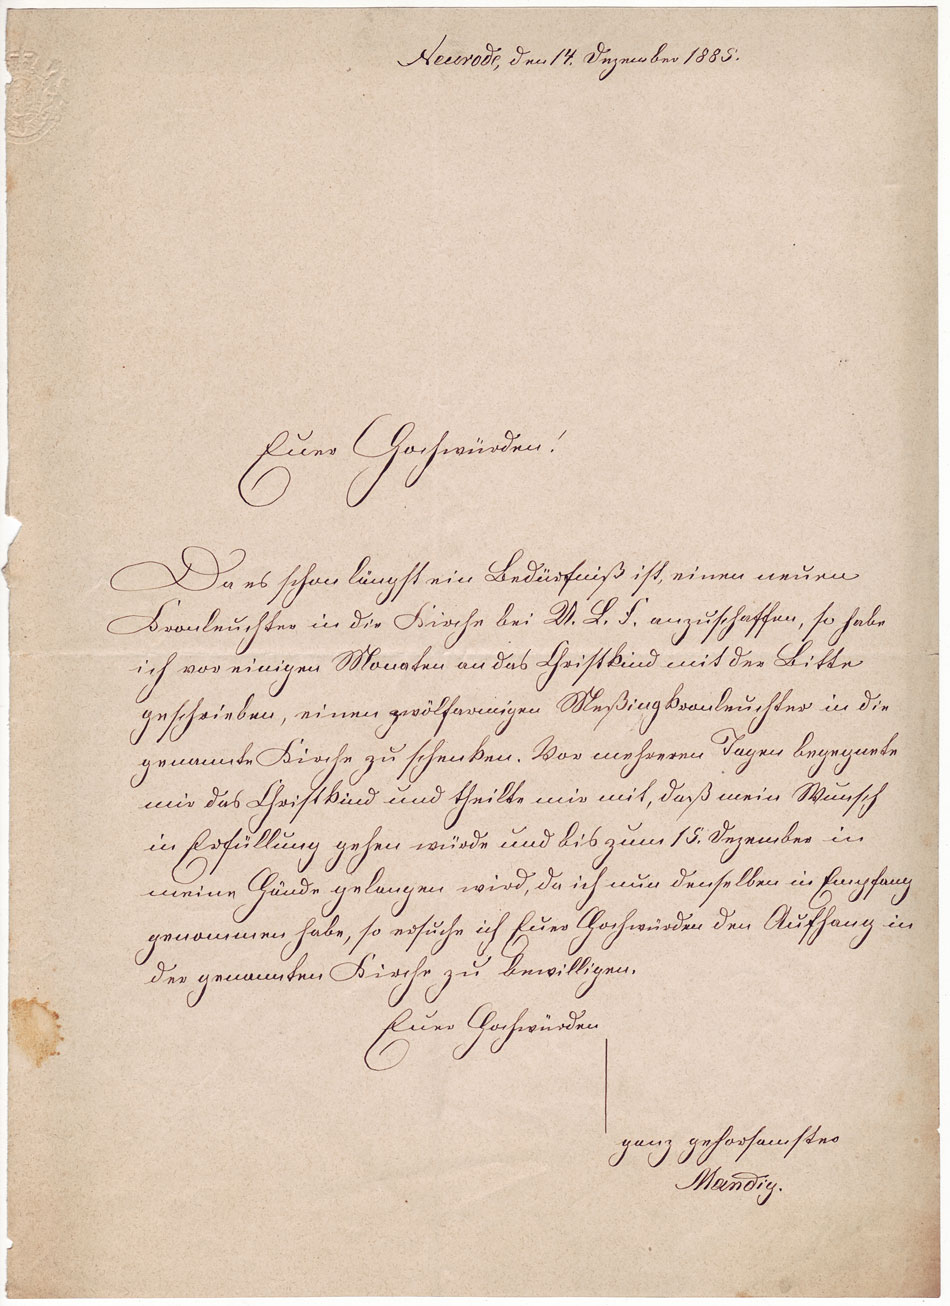 Neurode, den 14. Dezember 1885.
Euer Hochwürden!
Da es schon längst ein Bedürfniß ist, einen neuen
Kronleuchter in die Kirche bei U. L. F. anzuschaffen, so habe
ich vor einigen Monaten an das Christkind mit der Bitte
geschrieben, einen zwölfarmigen Meßingkronleuchter in die
genannte Kirche zu schenken. Vor mehreren Tagen begegnete
mir das Christkind und theilte mir mit, daß mein Wunsch
in Erfüllung gehen würde und bis zum 15. Dezember in
meine Hände gelangen wird, da ich nun denselben in Empfang
genommen habe, so ersuche ich Euer Hochwürden den Aufhang in
der genannten Kirche zu bewilligen.
Euer Hochwürden
ganz gehorsamster
Mandig.